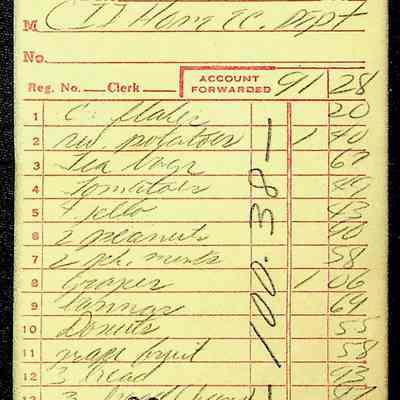 M CI Hom Ec. Dept
No.
Reg. No. Clerk ACCOUNT FORWARDED 91 28
1 C. flakes 20
2 sw. potatoes 1 40
3 Tea bags 67
4 tomatoes 49
5 4 jello 43
6 2 peanuts 90
7 2 pk. mints 58
8 Grapes 1 06
9 64
10 Donuts 55
11 grape fruit 58
12 3 bread 93
3 97
100.38